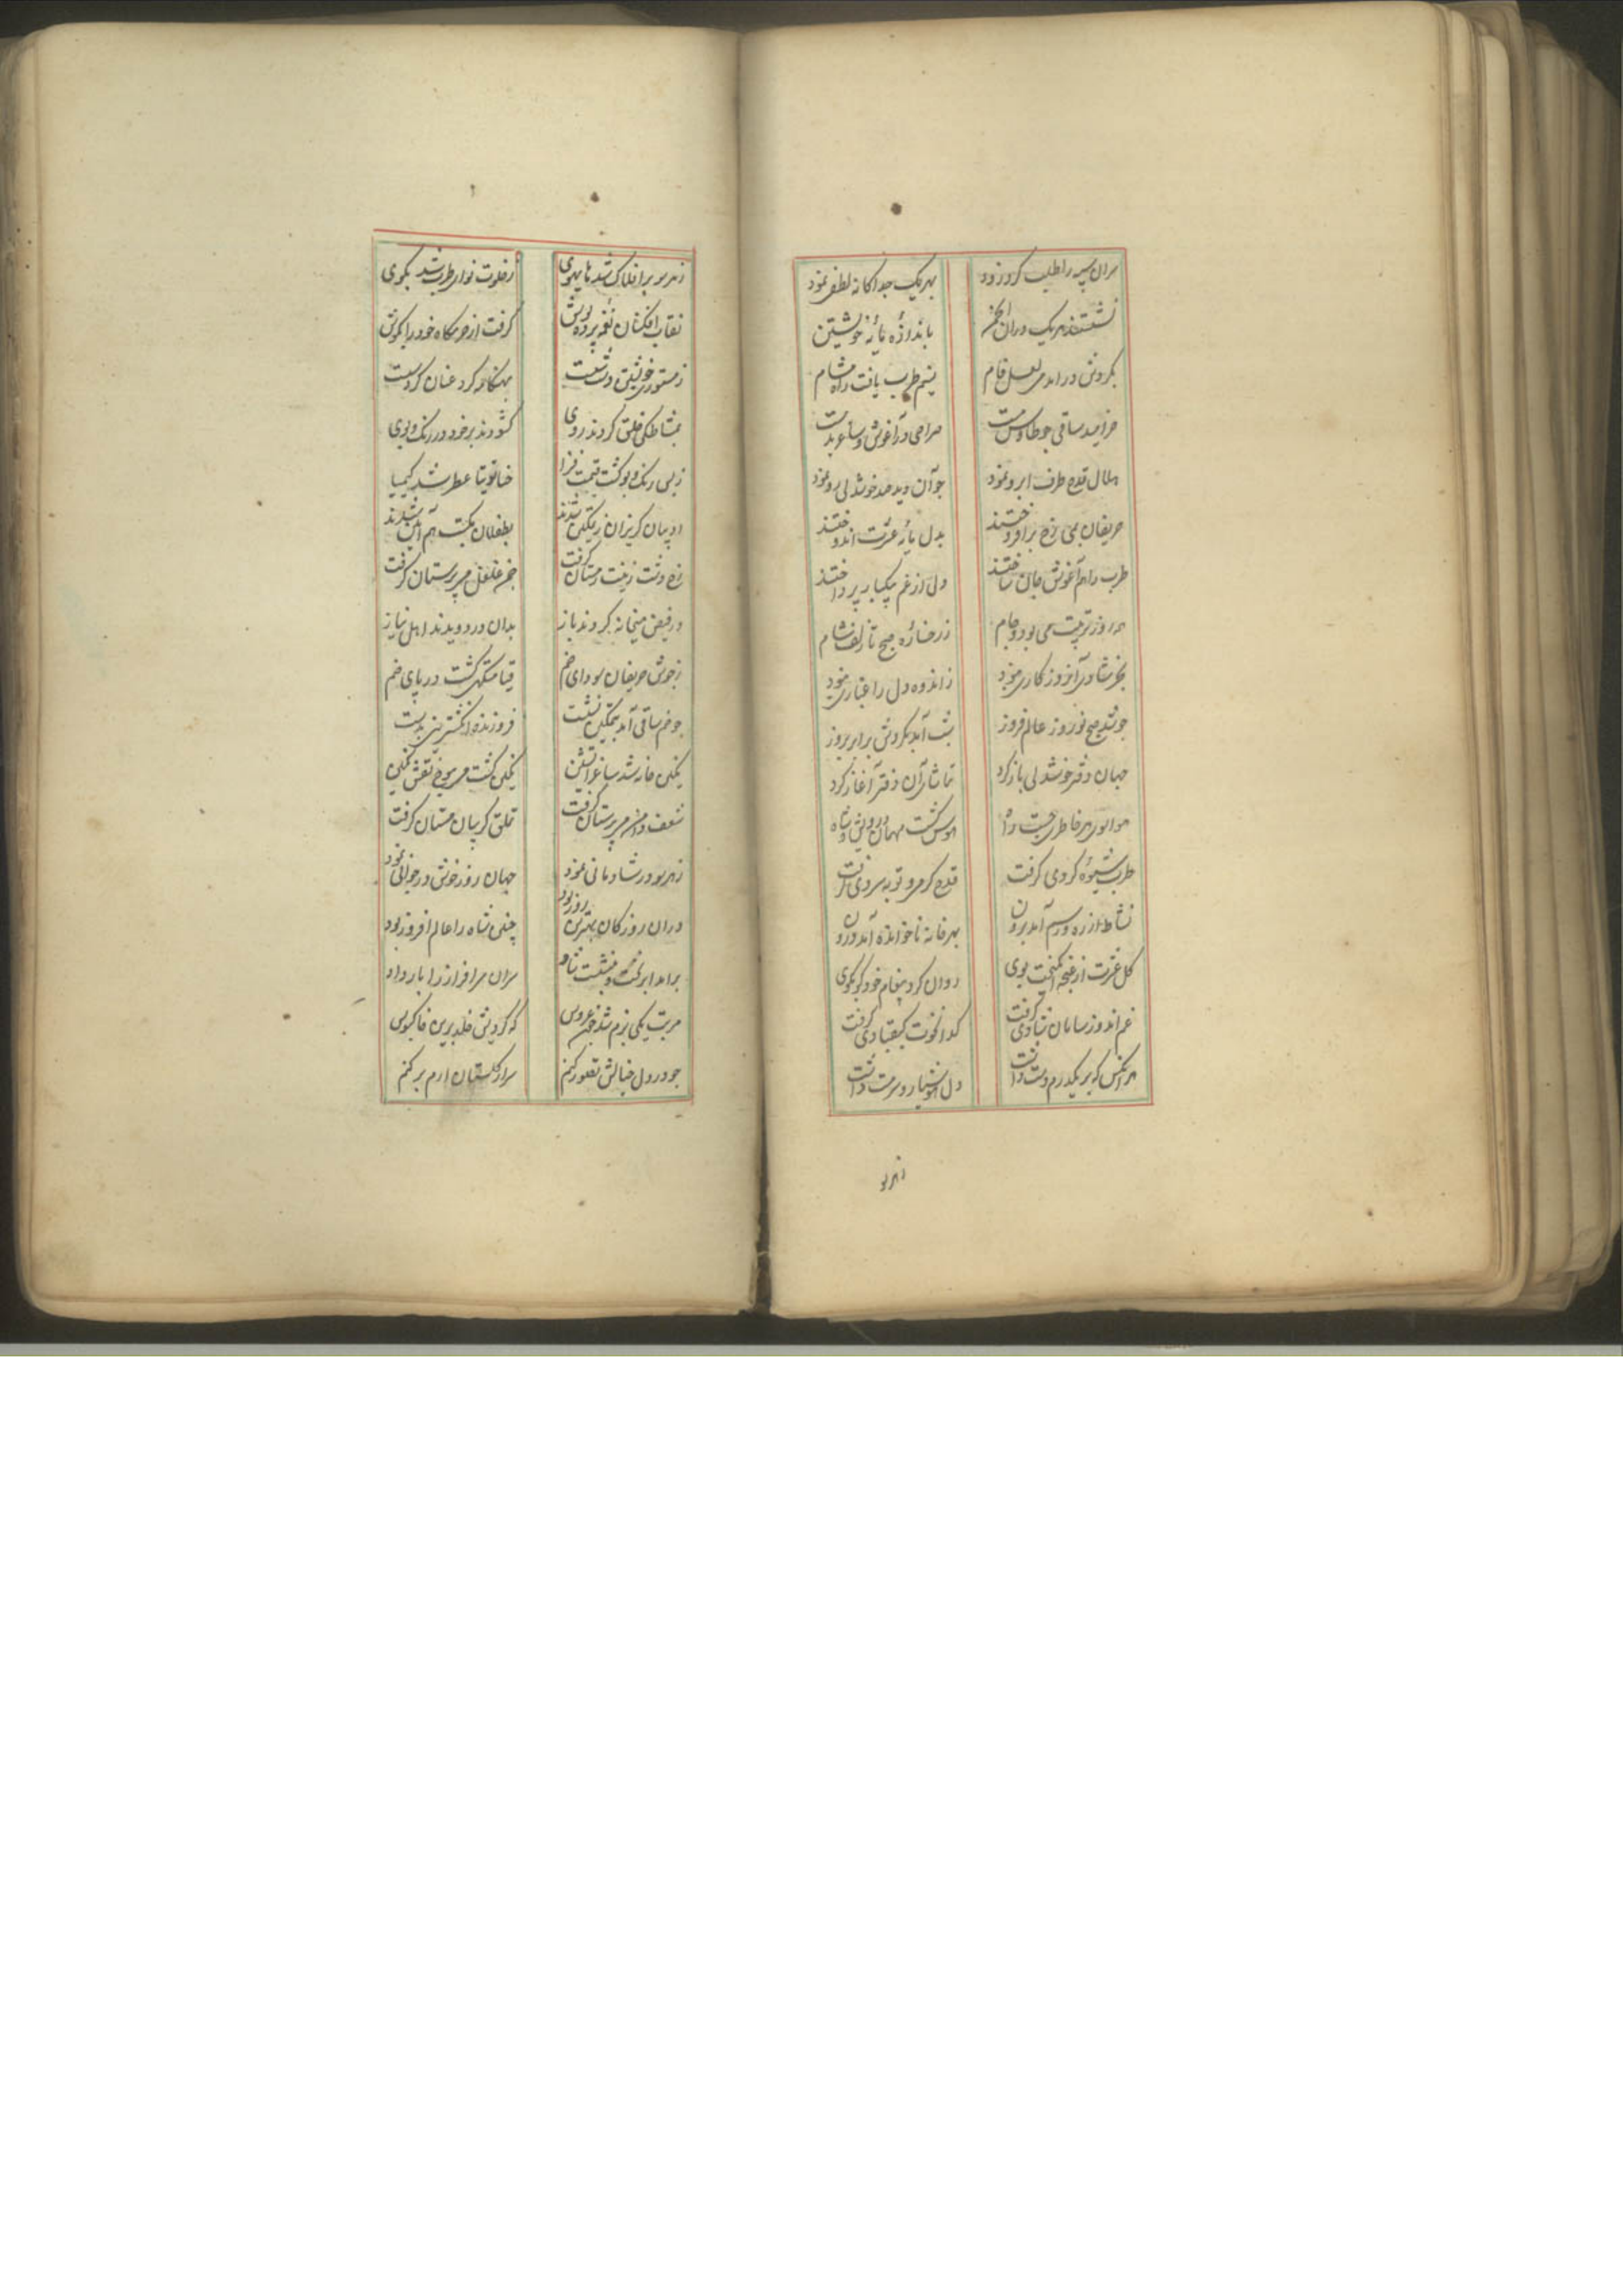 سران سپه را طلب کرد زود بهریک جداکانه لطفی نمود
نشستند هریک دران انجمن باندازهٔ پایهٔ خویشتن
بکردش درامد می لعل فام نسیم طرب یافت راه مشام
خرامید ساقی چو طاوس مست صراحی در آغوش و ساغر بدست
هلال قدح طرف ابرو نمود چو آن دید مه خوشدلی رو نمود
حریفان بمی رخ برافروختند بدل پایهٔ عشرت اندوختند
طرب را هم آغوش جان ساختند دل از غم بیکبار پرداختند
همه روز ترتیب می بود و جام ز رخسارهٔ صبح تا زلف شام
بجز شادی آنروز کاری نبود ز اندوه دل را غباری نبود
چو شد صبح نوروز عالم فروز شب آمد بکردش برابر بروز
جهان دفتر خوشدلی باز کرد تماشای آن دفتر آغاز کرد
هوا بوی هر خاطری جست راه هوس کشت مهمان درویش و شاه
طرب شیوهٔ کردمی کرفت قدح کرم رو توبه سردی کرفت
نشاط از ره و رسم آمد برون بهر خانه ناخوانده آمد درون
کل عشرت از غنچه انکیخت بوی روان کرد پیغام خود کو بکوی
غم اندوز سامان شادی کرفت کدا نخوت کیقبادی کرفت
هر آنکس که بر یکدرم دست داشت دل هوشیار و سر مست داشت
زهر سو
زهر سو بر افلاک شد هایهوی ز خلوت نوای طرب شد بکوی
نقاب افکنان نغمه پرده پوش کرفت از خرمکاه خود را بکوش
ز مستوری خویشتن دست شست بهنکامه کرد عنان کرد سست
بمشاطکی خلق کردند روی کشودند بر خود در رنک و بوی
ز بس رنک و بو کشت قیمت فزا حنا توتیا عطر شد کیمیا
ادیبان کریزان ز تمکین شدند بطفلان مکتب هم آیین شدند
رخ دشت زینت ز مستان کرفت خم می غلغل می پرستان کرفت
در فیض میخانه کردند باز بدان در دویدند اهل نیاز
ز جوش حریفان سودای خم قیامتکهی کشت در پای خم
چو خم ساقی آمد بتمکین نشست فروزنده انکشترینی بدست
نکین خانه شد ساغر آتشین نکین کشت می موج نقش نکین
شعف دامن می پرستان کرفت تملق کریبان مستان کرفت
زهر سو در شادمانی نمود جهان روز خوش در جوانی نمود
دران روز کان بهترین روز بود چنین شاه را عالم افروز بود
برامد بر تخت و بنشست شاد سران سرافراز را بار داد
مرتب یکی بزم شد چون عروس که کردیش خلد برین خاکبوس
چو در دل خیالش تصور کنم سر از کلستان ارم بر کنم